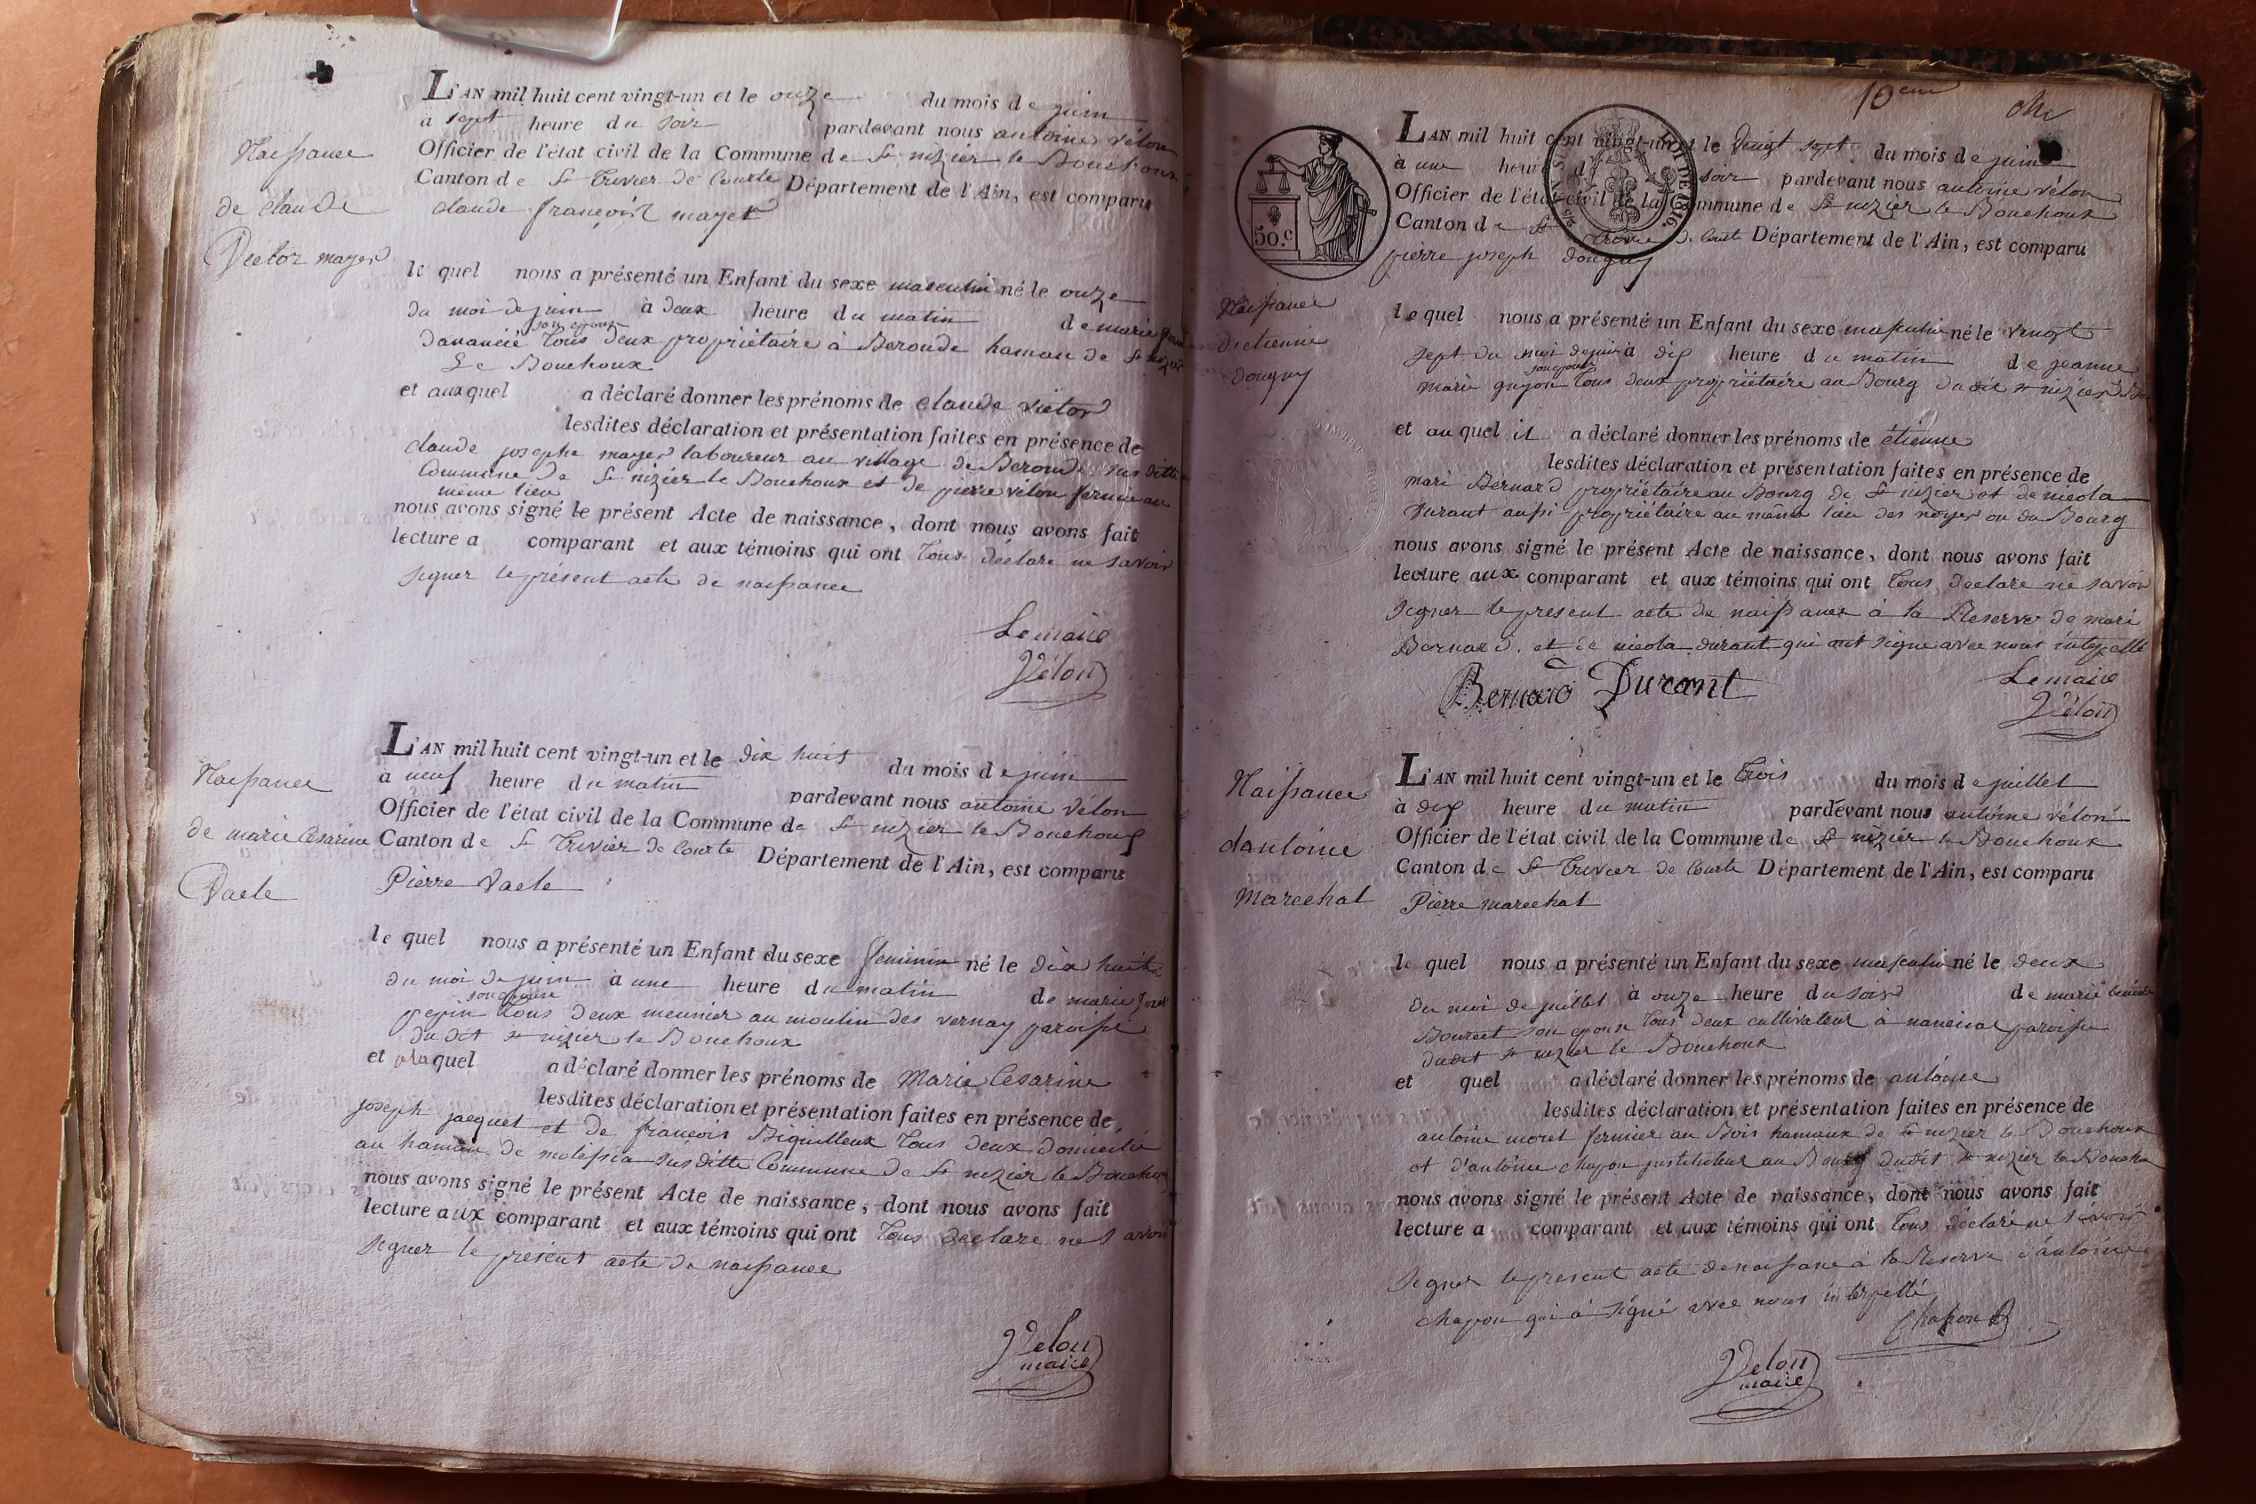 L'AN mil huit cent vingt-un et le onze du mois de juin
à sept heure du soir pardevant nous antoine vélon
Officier de l'état civil de la Commune de St nizier le Bouchoux
Canton de St Trivier de Courte Département de l'Ain, est comparu
claude françois mayet
Naissance
de claude
Victor mayet
le quel nous a présenté un Enfant du sexe masculin né le onze
du moi de juin à deux heure du matin de marie
son epouse
Tous deux propriétaire à Beronde hamau de St nizier
Le Bouchoux
et auxquel a déclaré donner les prénoms de claude victor
lesdites déclaration et présentation faites en présence de
claude josephe mayet laboureur au village de Beronde susditte
Commune de St nizier le Bouchoux et de pierre vélon fermier au
même lieu
nous avons signé le présent Acte de naissance, dont nous avons fait
lecture a comparant et aux témoins qui ont Tous déclare ne savoir
signer le présent acte de naissance
Le maire
Vélon
L'AN mil huit cent vingt-un et le dix huit du mois de juin
à neuf heure du matin pardevant nous antoine vélon
Officier de l'état civil de la Commune de St nizier le Bouchoux
Canton de St Trivier de Courte Département de l'Ain, est comparu
Pierre Vaele
Naissance
de marie Cesarine
Vaele
le quel nous a présenté un Enfant du sexe feminin né le dix huit
du moi de juin à une heure du matin de marie
son epouse
pepin Tous deux meunier au moulin des vernay paroisse
dudit St nizier le Bouchoux
et quel a déclaré donner les prénoms de Marie Cesarine
lesdites déclaration et présentation faites en présence de
joseph jacquet et de francois Biguilleux Tous deux domicilié
au hamau de molissia susditte Commune de St nizier le Bouchoux
nous avons signé le présent Acte de naissance, dont nous avons fait
lecture aux comparant et aux témoins qui ont Tous déclare ne savoir
signer le présent acte de naissance
Velon
maire
10eme
L'AN mil huit cent vingt-un et le vingt sept du mois de juin
à une heure du soir pardevant nous antoine vélon
Officier de l'état civil de la Commune de St nizier le Bouchoux
Canton de St Trivier de Courte Département de l'Ain, est comparu
pierre joseph dougny
50.c
LOI DE 1816.
Naissance
detienne
dougny
le quel nous a présenté un Enfant du sexe masculin né le vingt
sept du moi de juin à dix heure du matin de jeanne
son epouse
marie guyon Tous deux propriétaire au Bourg dudit St nizier
et au quel il a déclaré donner les prénoms de étienne
lesdites déclaration et présentation faites en présence de
mari Bernard propriétaire au Bourg de St nizier et de nicola
Durant aussi propriétaire au même lieu des noyer ou du Bourg
nous avons signé le présent Acte de naissance, dont nous avons fait
lecture aux comparant et aux témoins qui ont Tous déclare ne savoir
signer le present acte de naissance à la Reserve de mari
Bernard et de nicola durant qui ont signe avec nous interpellé
Bernard Durant
Le maire
Vélon
L'AN mil huit cent vingt-un et le trois du mois de juillet
à dix heure du matin pardevant nous antoine vélon
Officier de l'état civil de la Commune de St nizier le Bouchoux
Canton de St Trivier de Courte Département de l'Ain, est comparu
Pierre marechal
Naissance
dantoine
Marechal
le quel nous a présenté un Enfant du sexe masculin né le deux
du moi de juillet à onze heure du soir de marie
Bourcet son epouse Tous deux cultivateur à paroisse
dudit St nizier le Bouchoux
et quel a déclaré donner les prénoms de antoine
lesdites déclaration et présentation faites en présence de
antoine moret fermier au Bois hamaux de St nizier le Bouchoux
et d'antoine chapon au Bourg dudit St nizier le Bouchoux
nous avons signé le présent Acte de naissance, dont nous avons fait
lecture a comparant et aux témoins qui ont Tous déclaré ne savoir
signer le present acte de naissance à la Reserve d'antoine
chapon qui à signé avec nous interpellé
Chapon
Velon
maire